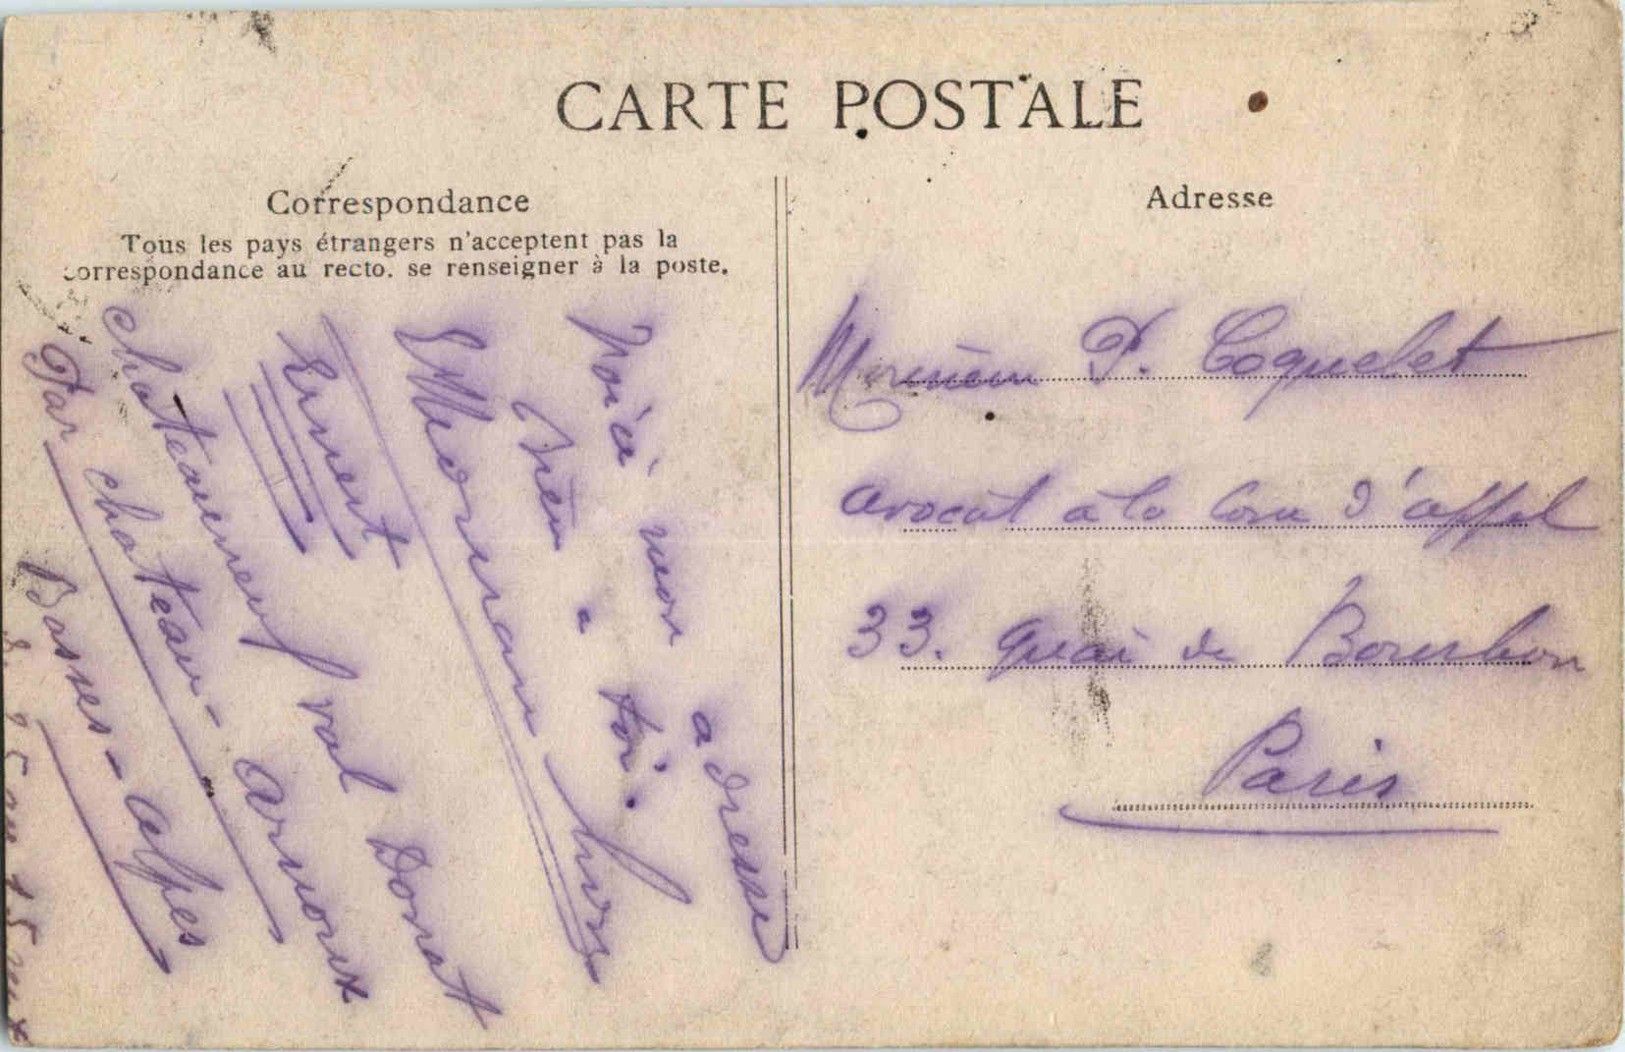 CARTE POSTALE
Correspondance
Tous les pays étrangers n'acceptent pas la
correspondance au recto. se renseigner à la poste.
Voici mon adresse
bien à toi.
Ernest
chateauneuf val Donat
Par chateau-arnoux
Basses-alpes
Adresse
Monsieur P. Coquelet
avocat à la Cour d'appel
33. Quai de Bourbon
Paris